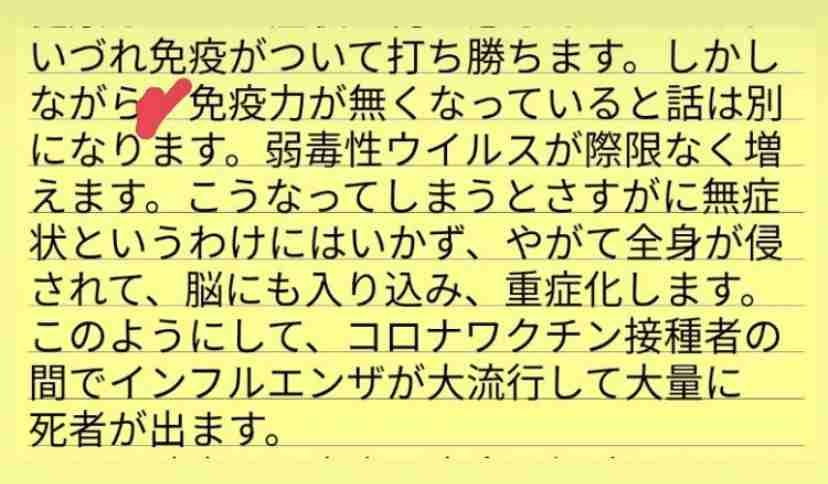 いづれ免疫がついて打ち勝ちます。しかし
ながら 免疫力が無くなっていると話は別
になります。弱毒性ウイルスが際限なく増
えます。こうなってしまうとさすがに無症
状というわけにはいかず、やがて全身が侵
されて、脳にも入り込み、重症化します。
このようにして、コロナワクチン接種者の
間でインフルエンザが大流行して大量に
死者が出ます。